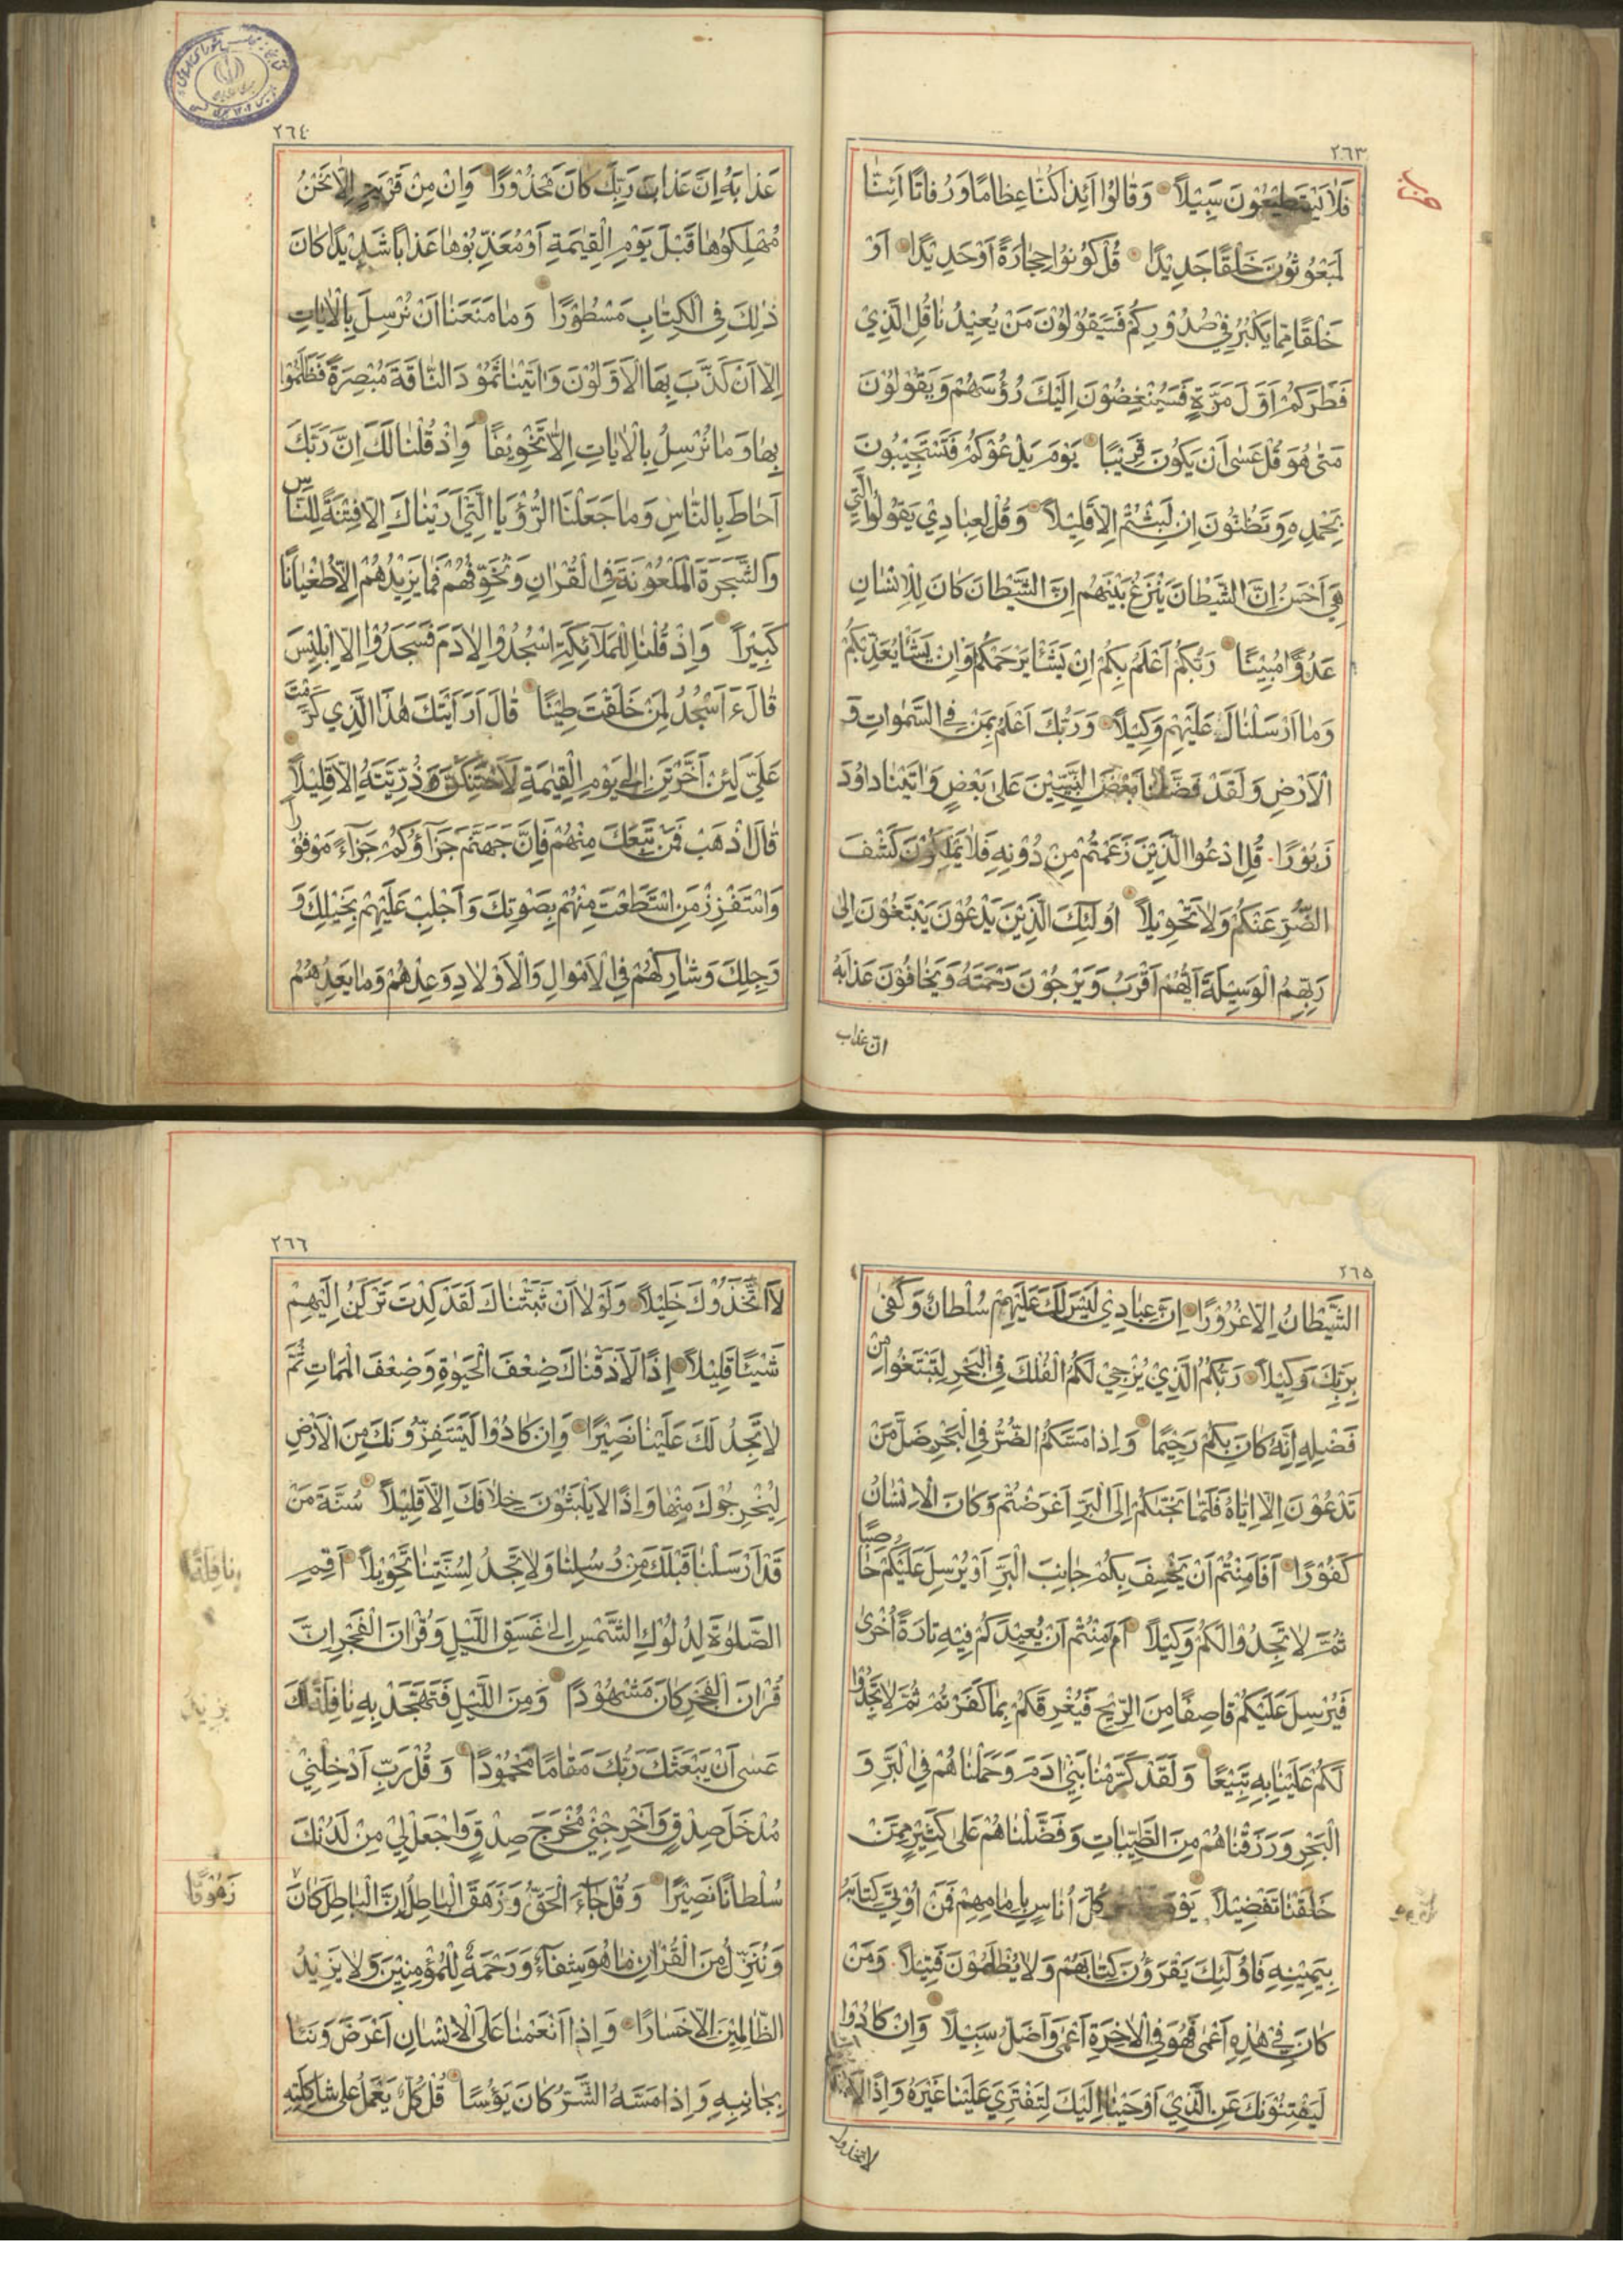 ٢٦٣
فَلَا يَسْتَطِيعُونَ سَبِيلًا وَقَالُوا أَئِذَا كُنَّا عِظَامًا وَرُفَاتًا أَئِنَّا
لَمَبْعُوثُونَ خَلْقًا جَدِيدًا قُلْ كُونُوا حِجَارَةً أَوْ حَدِيدًا أَوْ
خَلْقًا مِمَّا يَكْبُرُ فِي صُدُورِكُمْ فَسَيَقُولُونَ مَنْ يُعِيدُنَا قُلِ الَّذِي
فَطَرَكُمْ أَوَّلَ مَرَّةٍ فَسَيُنْغِضُونَ إِلَيْكَ رُؤُسَهُمْ وَيَقُولُونَ
مَتَى هُوَ قُلْ عَسَى أَنْ يَكُونَ قَرِيبًا يَوْمَ يَدْعُوكُمْ فَتَسْتَجِيبُونَ
بِحَمْدِهِ وَتَظُنُّونَ إِنْ لَبِثْتُمْ إِلَّا قَلِيلًا وَقُلْ لِعِبَادِي يَقُولُوا الَّتِي
هِيَ أَحْسَنُ إِنَّ الشَّيْطَانَ يَنْزَغُ بَيْنَهُمْ إِنَّ الشَّيْطَانَ كَانَ لِلْإِنْسَانِ
عَدُوًّا مُبِينًا رَبُّكُمْ أَعْلَمُ بِكُمْ إِنْ يَشَأْ يَرْحَمْكُمْ وَإِنْ يَشَأْ يُعَذِّبْكُمْ
وَمَا أَرْسَلْنَاكَ عَلَيْهِمْ وَكِيلًا وَرَبُّكَ أَعْلَمُ بِمَنْ فِي السَّمٰوَاتِ وَ
الْأَرْضِ وَلَقَدْ فَضَّلْنَا بَعْضَ النَّبِيِّينَ عَلَى بَعْضٍ وَاٰتَيْنَا دَاوُدَ
زَبُورًا قُلِ ادْعُوا الَّذِينَ زَعَمْتُمْ مِنْ دُونِهِ فَلَا يَمْلِكُونَ كَشْفَ
الضُّرِّ عَنْكُمْ وَلَا تَحْوِيلًا أُولٰئِكَ الَّذِينَ يَدْعُونَ يَبْتَغُونَ إِلَى
رَبِّهِمُ الْوَسِيلَةَ أَيُّهُمْ أَقْرَبُ وَيَرْجُونَ رَحْمَتَهُ وَيَخَافُونَ عَذَابَهُ
ان عذاب
٢٦٤
عَذَابَهُ إِنَّ عَذَابَ رَبِّكَ كَانَ مَحْذُورًا وَإِنْ مِنْ قَرْيَةٍ إِلَّا نَحْنُ
مُهْلِكُوهَا قَبْلَ يَوْمِ الْقِيٰمَةِ أَوْ مُعَذِّبُوهَا عَذَابًا شَدِيدًا كَانَ
ذٰلِكَ فِي الْكِتَابِ مَسْطُورًا وَمَا مَنَعَنَا أَنْ نُرْسِلَ بِالْاٰيَاتِ
إِلَّا أَنْ كَذَّبَ بِهَا الْأَوَّلُونَ وَاٰتَيْنَا ثَمُودَ النَّاقَةَ مُبْصِرَةً فَظَلَمُوا
بِهَا وَمَا نُرْسِلُ بِالْاٰيَاتِ إِلَّا تَخْوِيفًا وَإِذْ قُلْنَا لَكَ إِنَّ رَبَّكَ
أَحَاطَ بِالنَّاسِ وَمَا جَعَلْنَا الرُّؤْيَا الَّتِي أَرَيْنَاكَ إِلَّا فِتْنَةً لِلنَّاسِ
وَالشَّجَرَةَ الْمَلْعُونَةَ فِي الْقُرْاٰنِ وَنُخَوِّفُهُمْ فَمَا يَزِيدُهُمْ إِلَّا طُغْيَانًا
كَبِيرًا وَإِذْ قُلْنَا لِلْمَلَائِكَةِ اسْجُدُوا لِاٰدَمَ فَسَجَدُوا إِلَّا إِبْلِيسَ
قَالَ ءَأَسْجُدُ لِمَنْ خَلَقْتَ طِينًا قَالَ أَرَأَيْتَكَ هٰذَا الَّذِي كَرَّمْتَ
عَلَيَّ لَئِنْ أَخَّرْتَنِ إِلَى يَوْمِ الْقِيٰمَةِ لَأَحْتَنِكَنَّ ذُرِّيَّتَهُ إِلَّا قَلِيلًا
قَالَ اذْهَبْ فَمَنْ تَبِعَكَ مِنْهُمْ فَإِنَّ جَهَنَّمَ جَزَاؤُكُمْ جَزَاءً مَوْفُورًا
وَاسْتَفْزِزْ مَنِ اسْتَطَعْتَ مِنْهُمْ بِصَوْتِكَ وَأَجْلِبْ عَلَيْهِمْ بِخَيْلِكَ وَ
رَجِلِكَ وَشَارِكْهُمْ فِي الْأَمْوَالِ وَالْأَوْلَادِ وَعِدْهُمْ وَمَا يَعِدُهُمُ
٢٦٥
الشَّيْطَانُ إِلَّا غُرُورًا إِنَّ عِبَادِي لَيْسَ لَكَ عَلَيْهِمْ سُلْطَانٌ وَكَفَى
بِرَبِّكَ وَكِيلًا رَبُّكُمُ الَّذِي يُزْجِي لَكُمُ الْفُلْكَ فِي الْبَحْرِ لِتَبْتَغُوا مِنْ
فَضْلِهِ إِنَّهُ كَانَ بِكُمْ رَحِيمًا وَإِذَا مَسَّكُمُ الضُّرُّ فِي الْبَحْرِ ضَلَّ مَنْ
تَدْعُونَ إِلَّا إِيَّاهُ فَلَمَّا نَجّٰىكُمْ إِلَى الْبَرِّ أَعْرَضْتُمْ وَكَانَ الْإِنْسَانُ
كَفُورًا أَفَأَمِنْتُمْ أَنْ يَخْسِفَ بِكُمْ جَانِبَ الْبَرِّ أَوْ يُرْسِلَ عَلَيْكُمْ حَاصِبًا
ثُمَّ لَا تَجِدُوا لَكُمْ وَكِيلًا أَمْ أَمِنْتُمْ أَنْ يُعِيدَكُمْ فِيهِ تَارَةً أُخْرَى
فَيُرْسِلَ عَلَيْكُمْ قَاصِفًا مِنَ الرِّيحِ فَيُغْرِقَكُمْ بِمَا كَفَرْتُمْ ثُمَّ لَا تَجِدُوا
لَكُمْ عَلَيْنَا بِهِ تَبِيعًا وَلَقَدْ كَرَّمْنَا بَنِي اٰدَمَ وَحَمَلْنَاهُمْ فِي الْبَرِّ وَ
الْبَحْرِ وَرَزَقْنَاهُمْ مِنَ الطَّيِّبَاتِ وَفَضَّلْنَاهُمْ عَلَى كَثِيرٍ مِمَّنْ
خَلَقْنَا تَفْضِيلًا كُلَّ أُنَاسٍ بِإِمَامِهِمْ فَمَنْ أُوتِيَ كِتَابَهُ
بِيَمِينِهِ فَأُولٰئِكَ يَقْرَؤُنَ كِتَابَهُمْ وَلَا يُظْلَمُونَ فَتِيلًا وَمَنْ
كَانَ فِي هٰذِهِ أَعْمَى فَهُوَ فِي الْاٰخِرَةِ أَعْمَى وَأَضَلُّ سَبِيلًا وَإِنْ كَادُوا
لَيَفْتِنُونَكَ عَنِ الَّذِي أَوْحَيْنَا إِلَيْكَ لِتَفْتَرِيَ عَلَيْنَا غَيْرَهُ وَإِذًا
لاتخذوك
٢٦٦
لَاتَّخَذُوكَ خَلِيلًا وَلَوْلَا أَنْ ثَبَّتْنَاكَ لَقَدْ كِدْتَ تَرْكَنُ إِلَيْهِمْ
شَيْئًا قَلِيلًا إِذًا لَأَذَقْنَاكَ ضِعْفَ الْحَيٰوةِ وَضِعْفَ الْمَمَاتِ ثُمَّ
لَا تَجِدُ لَكَ عَلَيْنَا نَصِيرًا وَإِنْ كَادُوا لَيَسْتَفِزُّونَكَ مِنَ الْأَرْضِ
لِيُخْرِجُوكَ مِنْهَا وَإِذًا لَا يَلْبَثُونَ خِلَافَكَ إِلَّا قَلِيلًا سُنَّةَ مَنْ
قَدْ أَرْسَلْنَا قَبْلَكَ مِنْ رُسُلِنَا وَلَا تَجِدُ لِسُنَّتِنَا تَحْوِيلًا أَقِمِ
الصَّلٰوةَ لِدُلُوكِ الشَّمْسِ إِلَى غَسَقِ اللَّيْلِ وَقُرْاٰنَ الْفَجْرِ إِنَّ
قُرْاٰنَ الْفَجْرِ كَانَ مَشْهُودًا وَمِنَ اللَّيْلِ فَتَهَجَّدْ بِهِ نَافِلَةً لَكَ
عَسَى أَنْ يَبْعَثَكَ رَبُّكَ مَقَامًا مَحْمُودًا وَقُلْ رَبِّ أَدْخِلْنِي
مُدْخَلَ صِدْقٍ وَأَخْرِجْنِي مُخْرَجَ صِدْقٍ وَاجْعَلْ لِي مِنْ لَدُنْكَ
سُلْطَانًا نَصِيرًا وَقُلْ جَاءَ الْحَقُّ وَزَهَقَ الْبَاطِلُ إِنَّ الْبَاطِلَ كَانَ
زَهُوقًا
وَنُنَزِّلُ مِنَ الْقُرْاٰنِ مَا هُوَ شِفَاءٌ وَرَحْمَةٌ لِلْمُؤْمِنِينَ وَلَا يَزِيدُ
الظَّالِمِينَ إِلَّا خَسَارًا وَإِذَا أَنْعَمْنَا عَلَى الْإِنْسَانِ أَعْرَضَ وَنَئَا
بِجَانِبِهِ وَإِذَا مَسَّهُ الشَّرُّ كَانَ يَؤُسًا قُلْ كُلٌّ يَعْمَلُ عَلَى شَاكِلَتِهِ